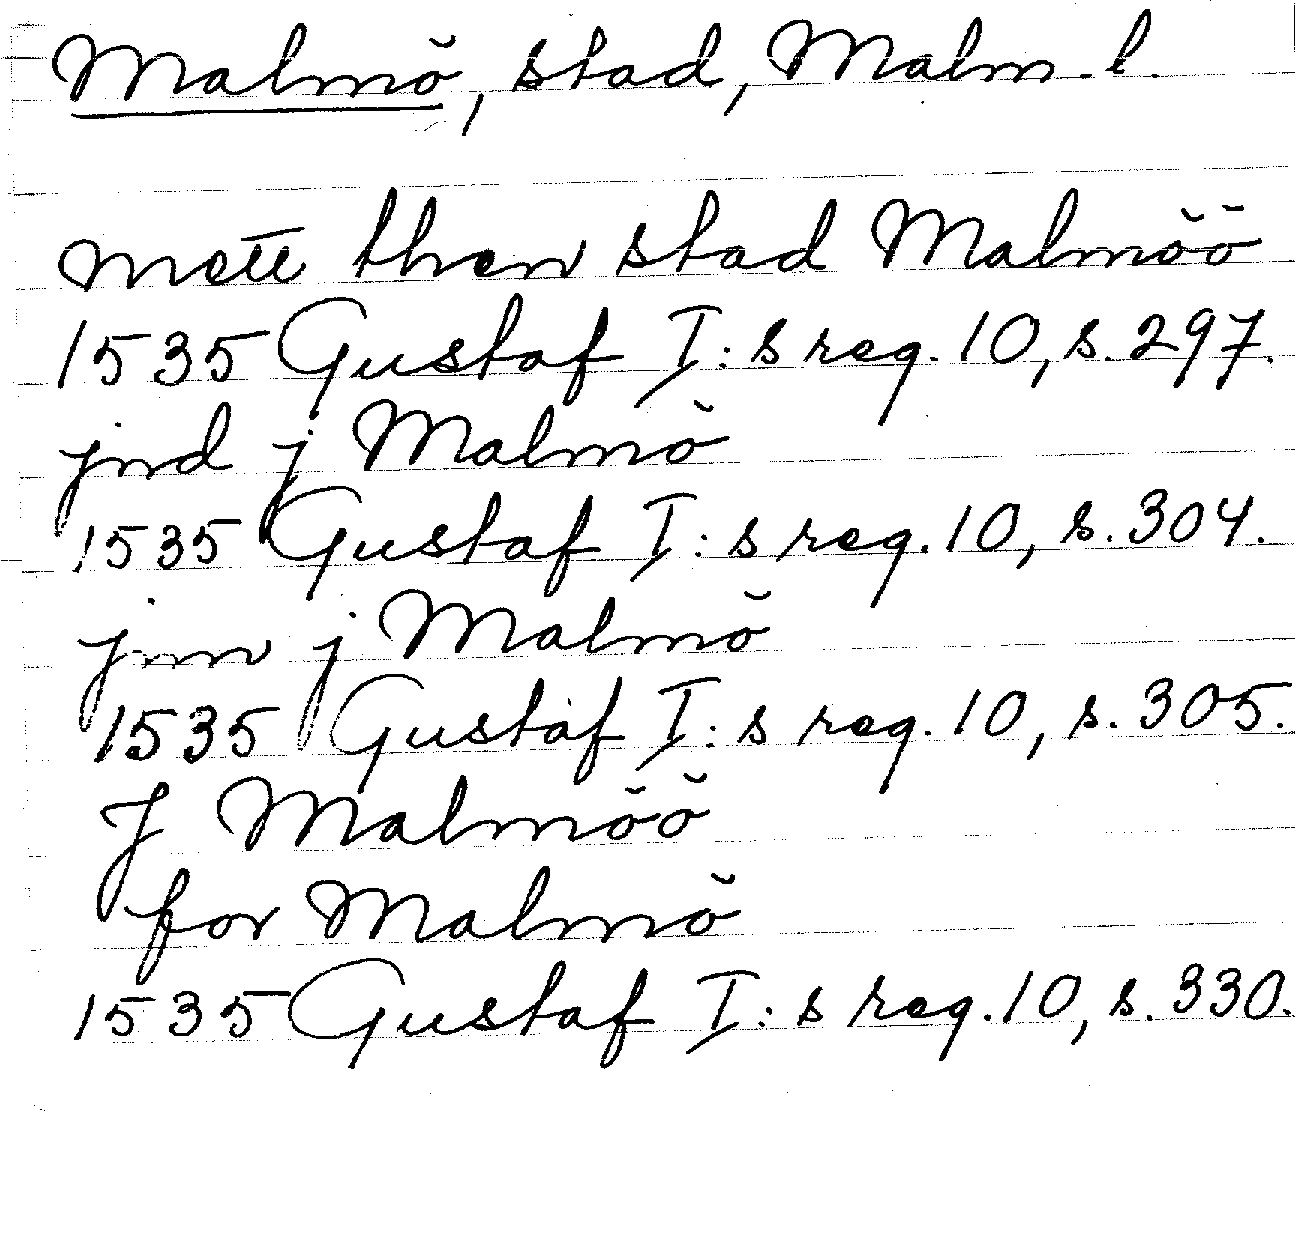 Malmö, stad, Malm. l.
mett then stad Malmöö
1535 Gustaf I:s reg. 10, s. 297.
jnd j Malmö
1535 Gustaf I:s reg. 10, s. 304.
jnn j Malmö
1535 Gustaf I:s reg. 10, s. 305.
J Malmöö
for Malmö
1535 Gustaf I:s reg. 10, s. 330.